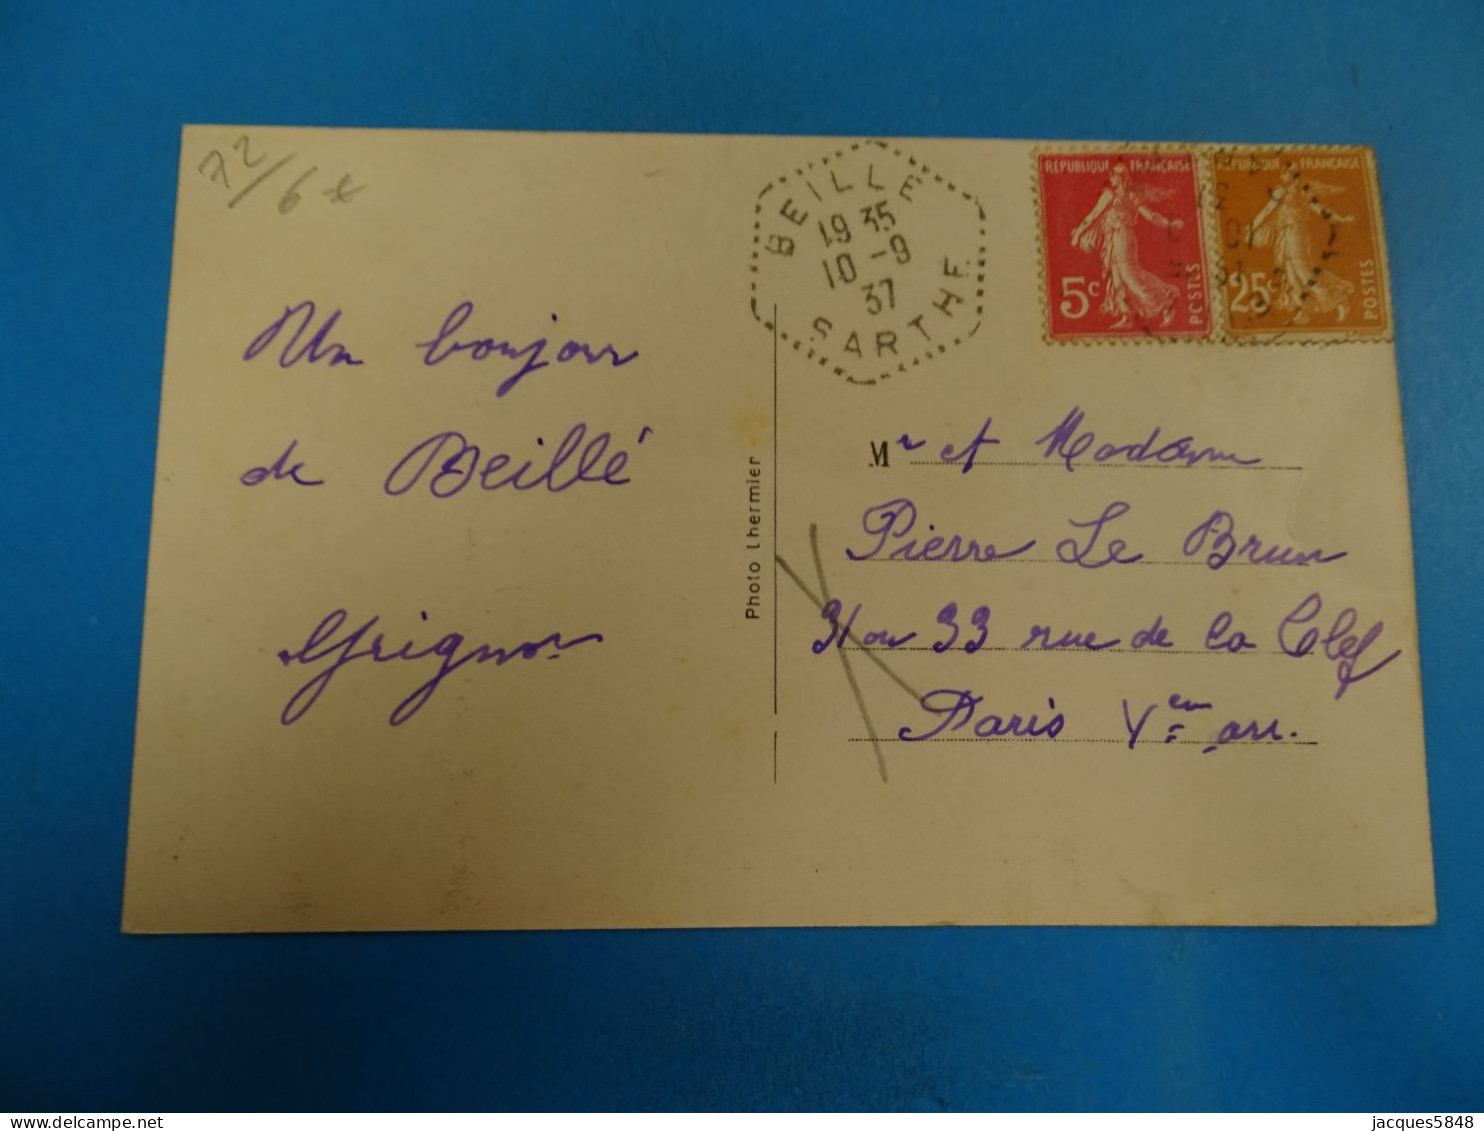 72/6
BEILLE
19 35
10 -9
37
SARTHE
RÉPUBLIQUE FRANÇAISE
5c
POSTES
RÉPUBLIQUE FRANÇAISE
25c
POSTES
Un bonjour
de Beillé
Grignon
Photo Lhermier
Mr et Madame
Pierre Le Brun
31 ou 33 rue de la Clef
Paris Vem arr.
jacques5848